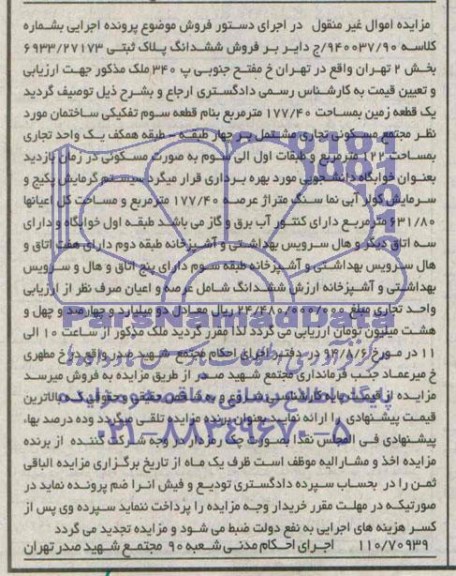 مزایده اموال غیر منقول در اجرای دستور فروش موضوع پرونده اجرایی بشماره
کلاسه ۹۴۰۰۳۷/۹۰/ج دایر بر فروش ششدانگ پلاک ثبتی ۶۹۳۳/۲۷۱۷۳
بخش ۲ تهران واقع در تهران خ مفتح جنوبی پ ۳۴۰ ملک مذکور جهت ارزیابی
و تعیین قیمت به کارشناس رسمی دادگستری ارجاع و بشرح ذیل توصیف گردید
یک قطعه زمین بمساحت ۱۷۷/۴۰ مترمربع بنام قطعه سوم تفکیکی ساختمان مورد
نظر مجتمع مسکونی تجاری مشتمل بر چهار طبقه - طبقه همکف یک واحد تجاری
بمساحت ۱۲۲ مترمربع و طبقات اول الی سوم به صورت مسکونی در زمان بازدید
بعنوان خوابگاه دانشجویی مورد بهره برداری قرار میگرد سیستم گرمایش پکیج و
سرمایش کولر آبی نما سنگ متراژ عرصه ۱۷۷/۴۰ مترمربع و مساحت کل اعیانها
۶۳۱/۸۰ مترمربع دارای کنتور آب برق و گاز می باشد طبقه اول خوابگاه و دارای
سه اتاق دیگر و هال سرویس بهداشتی و آشپزخانه طبقه دوم دارای هفت اتاق و
هال سرویس بهداشتی و آشپزخانه طبقه سوم دارای پنج اتاق و هال و سرویس
بهداشتی و آشپزخانه ارزش ششدانگ شامل عرصه و اعیان صرف نظر از ارزیابی
واحد تجاری مبلغ ۲۴/۴۸۰/۰۰۰/۰۰۰ ریال معادل دو میلیارد و چهارصد و چهل و
هشت میلیون تومان ارزیابی می گردد لذا مقرر گردید ملک مذکور از ساعت ۱۰ الی
۱۱ در مورخ ۹۴/۸/۶ در دفتر اجرای احکام مجتمع شهید صدر واقع در خ مطهری
خ میرعماد جنب فرمانداری مجتمع شهید صدر از طریق مزایده به فروش میرسد
مزایده از قیمت پایه کارشناسی شروع و به هر شخص حقیقی و حقوقی که بالاترین
قیمت پیشنهادی را ارائه نمایند بعنوان برنده مزایده تلقی میگردد وده درصد بهاء
پیشنهادی فی المجلس نقدا بصورت چک رمزدار در وجه شرکت کننده از برنده
مزایده اخذ و مشارالیه موظف است ظرف یک ماه از تاریخ برگزاری مزایده الباقی
ثمن را در بحساب سپرده دادگستری تودیع و فیش انرا ضم پرونده نماید در
صورتیکه در مهلت مقرر خریدار وجه مزایده را پرداخت ننماید سپرده وی پس از
کسر هزینه های اجرایی به نفع دولت ضبط می شود و مزایده تجدید می گردد
۱۱۰/۷۰۹۳۹ اجرای احکام مدنی شعبه ۹۰ مجتمع شهید صدر تهران
ParsNamadData
۰۲۱-۸۸۳۴۹۶۷۰-۵